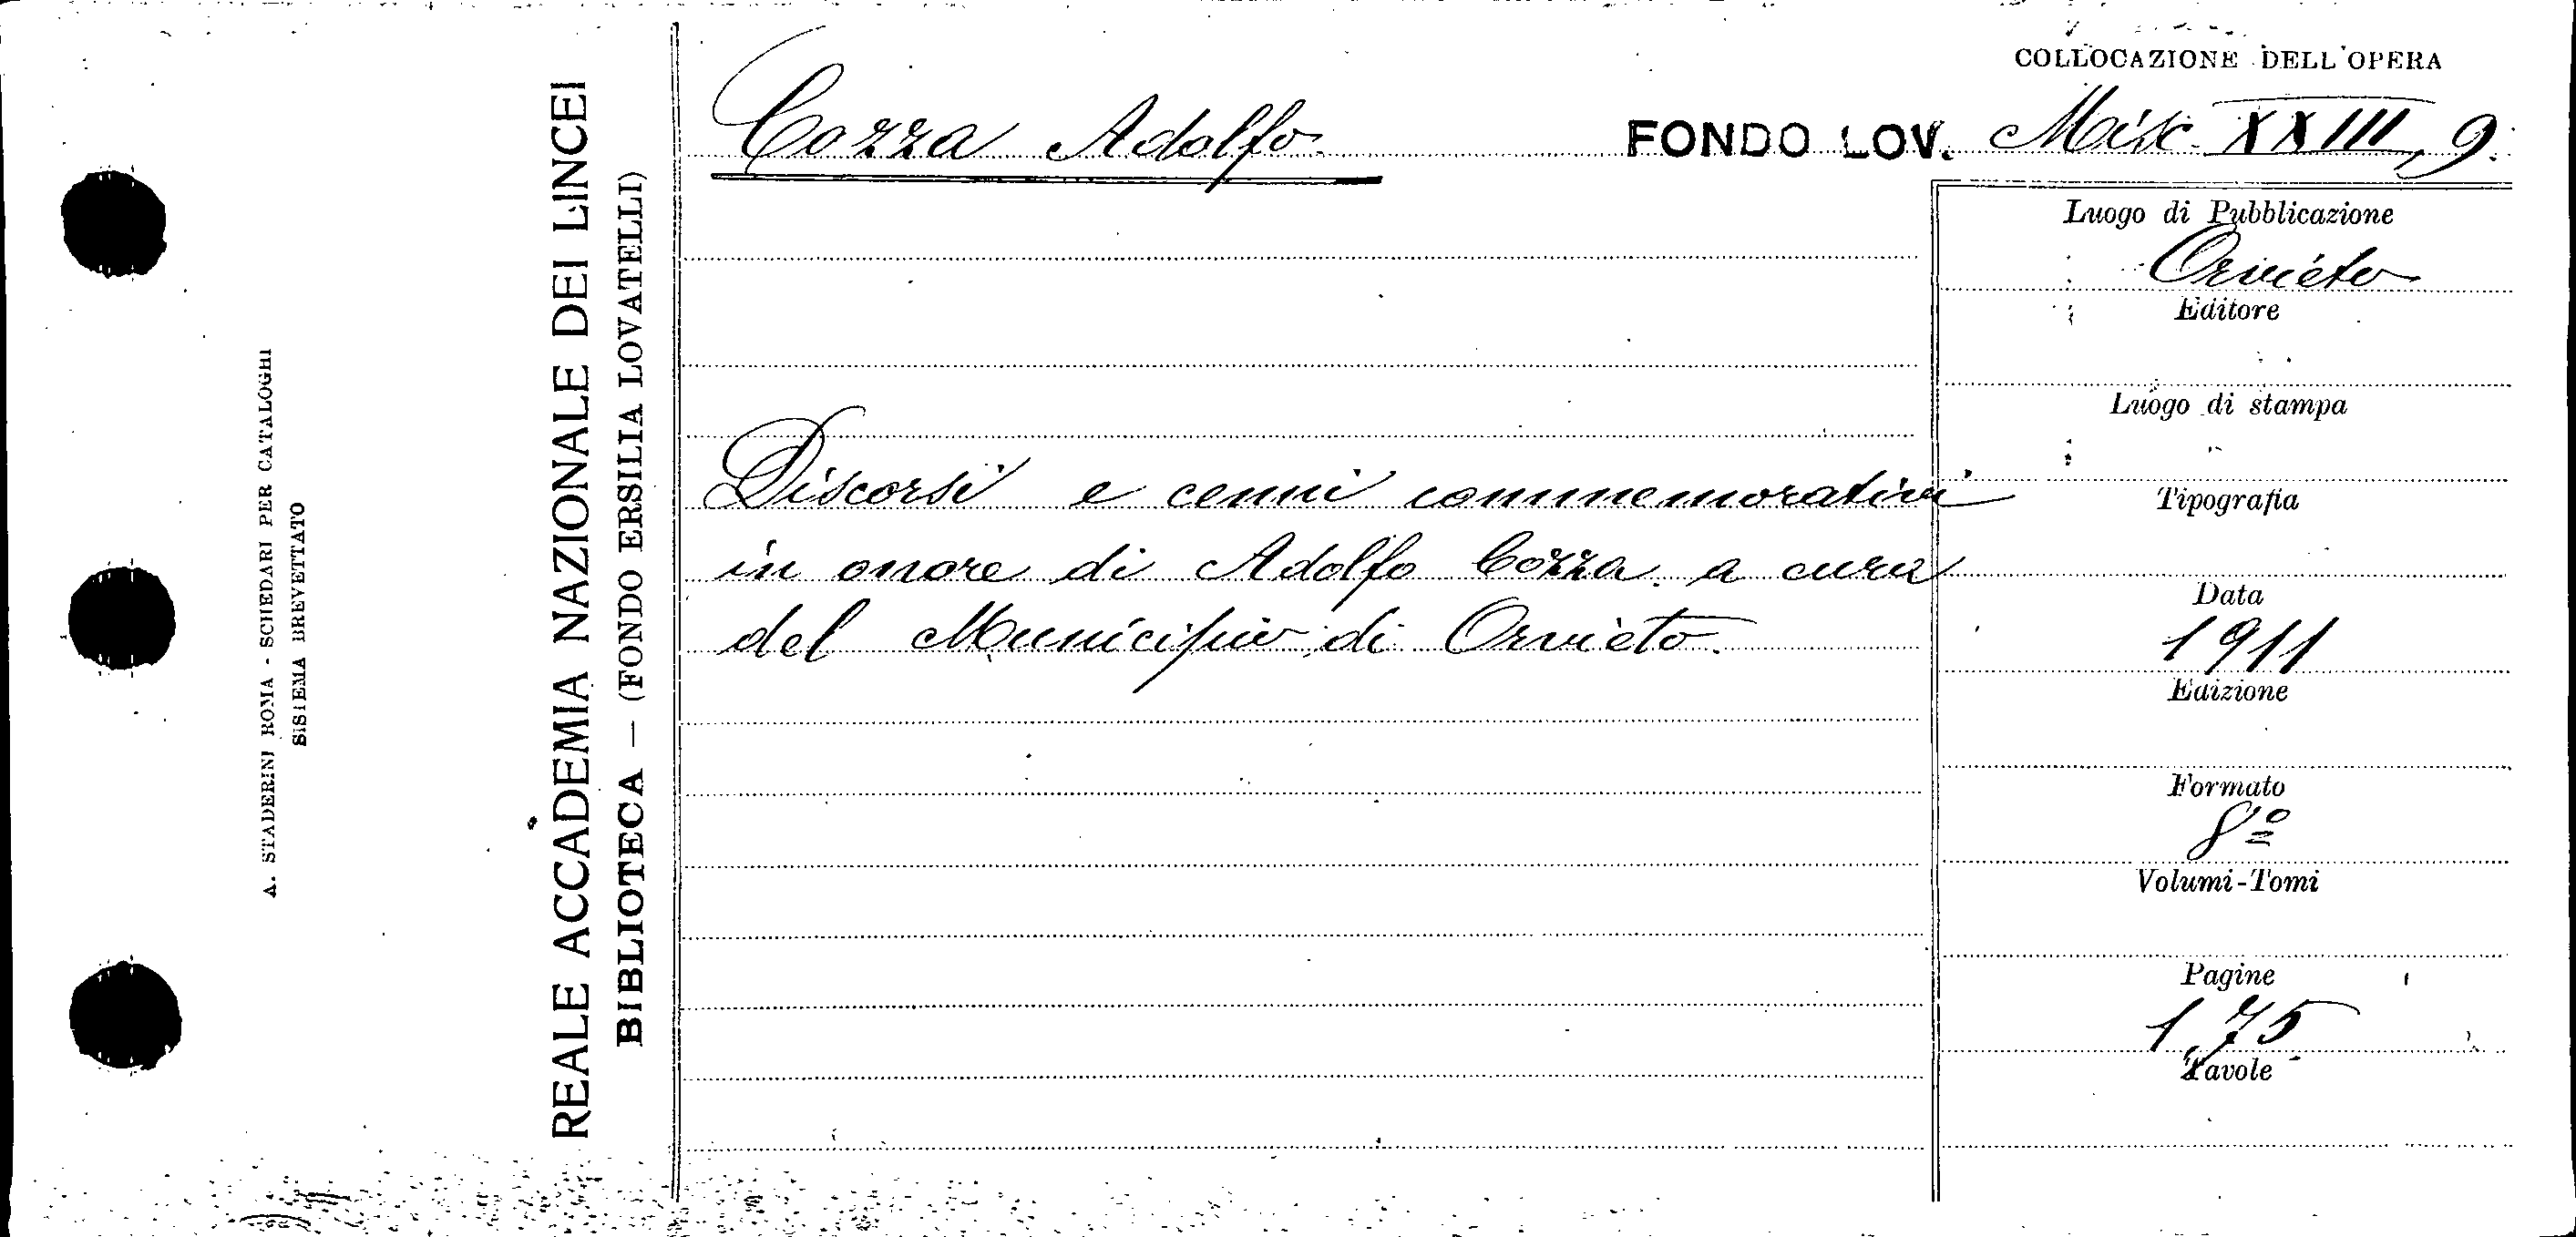 A. STADERINI ROMA - SCHEDARI PER CATALOGHI
SISTEMA BREVETTATO
REALE ACCADEMIA NAZIONALE DEI LINCEI
BIBLIOTECA — (FONDO ERSILIA LOVATELLI)
COLLOCAZIONE DELL'OPERA
Cozza Adolfo.
FONDO LOV. Misc. XXIII, 9.
Discorsi e cenni commemorativi
in onore di Adolfo Cozza a cura
del Municipio di Orvieto.
Luogo di Pubblicazione
Orvieto
Editore
Luogo di stampa
Tipografia
Data
1911
Edizione
Formato
8º
Volumi-Tomi
Pagine
175
Tavole